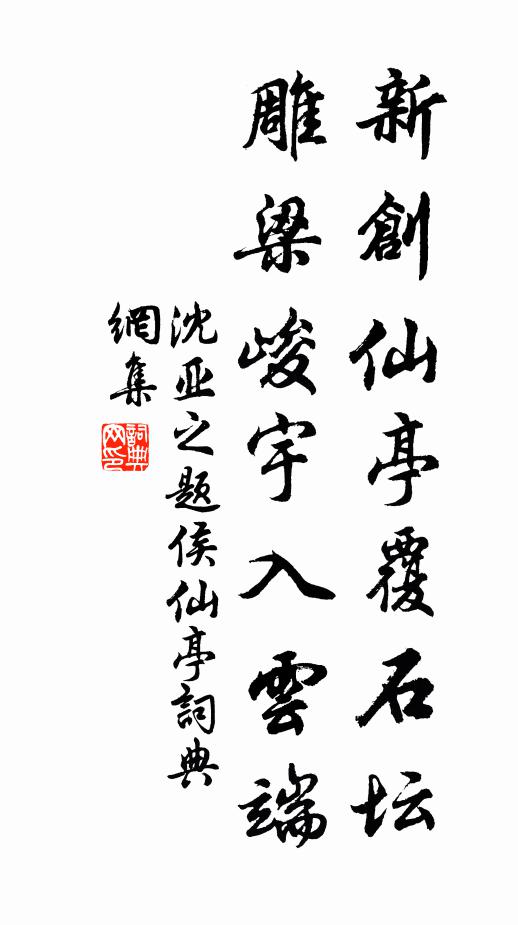 新創仙亭覆石坛
雕梁峻宇入雲端
沈亚之题侯仙亭詞典
網集
詞典网印